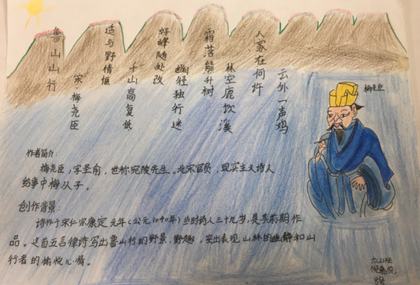 鲁山山行
宋 梅尧臣
适与野情惬
千山高复低
好峰随处改
幽径独行迷
霜落熊升树
林空鹿饮溪
人家在何许
云外一声鸡
梅尧臣
作者简介
梅尧臣，字圣俞，世称宛陵先生，北宋官员，现实主义诗人
给事中梅从子。
创作背景
诗作于宋仁宗康定元年（公元1040年）当时诗人三十九岁，是其前期作
品。这首五言律诗写出鲁山行的野景，野趣，突出表现山林的幽静和山
行者的愉悦心情。